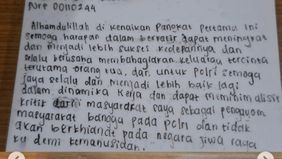 NRP 00110244
Alhamdulillah di kenaikan pangkat pertama ini
semoga harapan dalam berkarir dapat meningkat
dan menjadi lebih sukses kedepannya dan
selalu berusaha membahagiakan keluarga tercinta
terutama orang tua, dan untuk polri semoga
jaya selalu dan menjadi lebih baik lagi
dalam dinamika kerja dan dapat meminimalisir
kritik dari masyarakat saya sebagai pengayom
masyarakat bangga pada polri dan tidak
akan berkhianat pada negara jiwa raga
ku demi kemanusiaan.